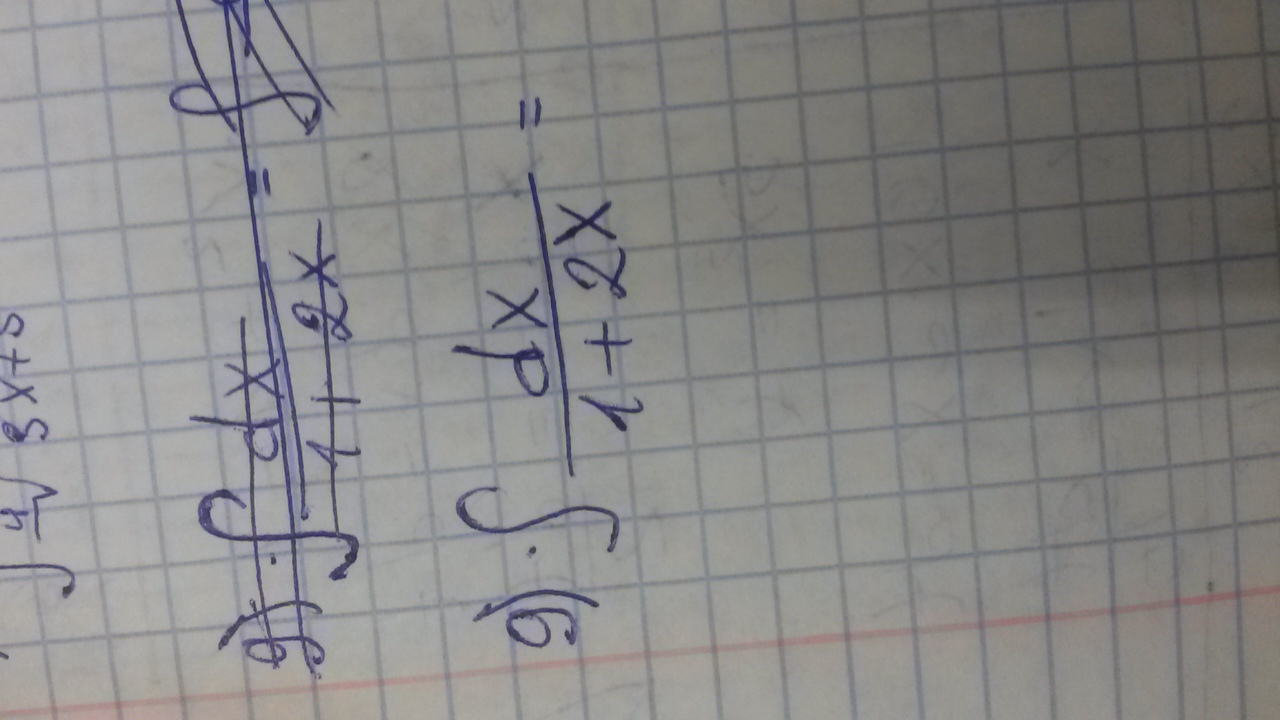 ∫ 4√ 3x+5
g) ∫ dx / 1+2x = ∫
g) ∫ dx / 1+2x =